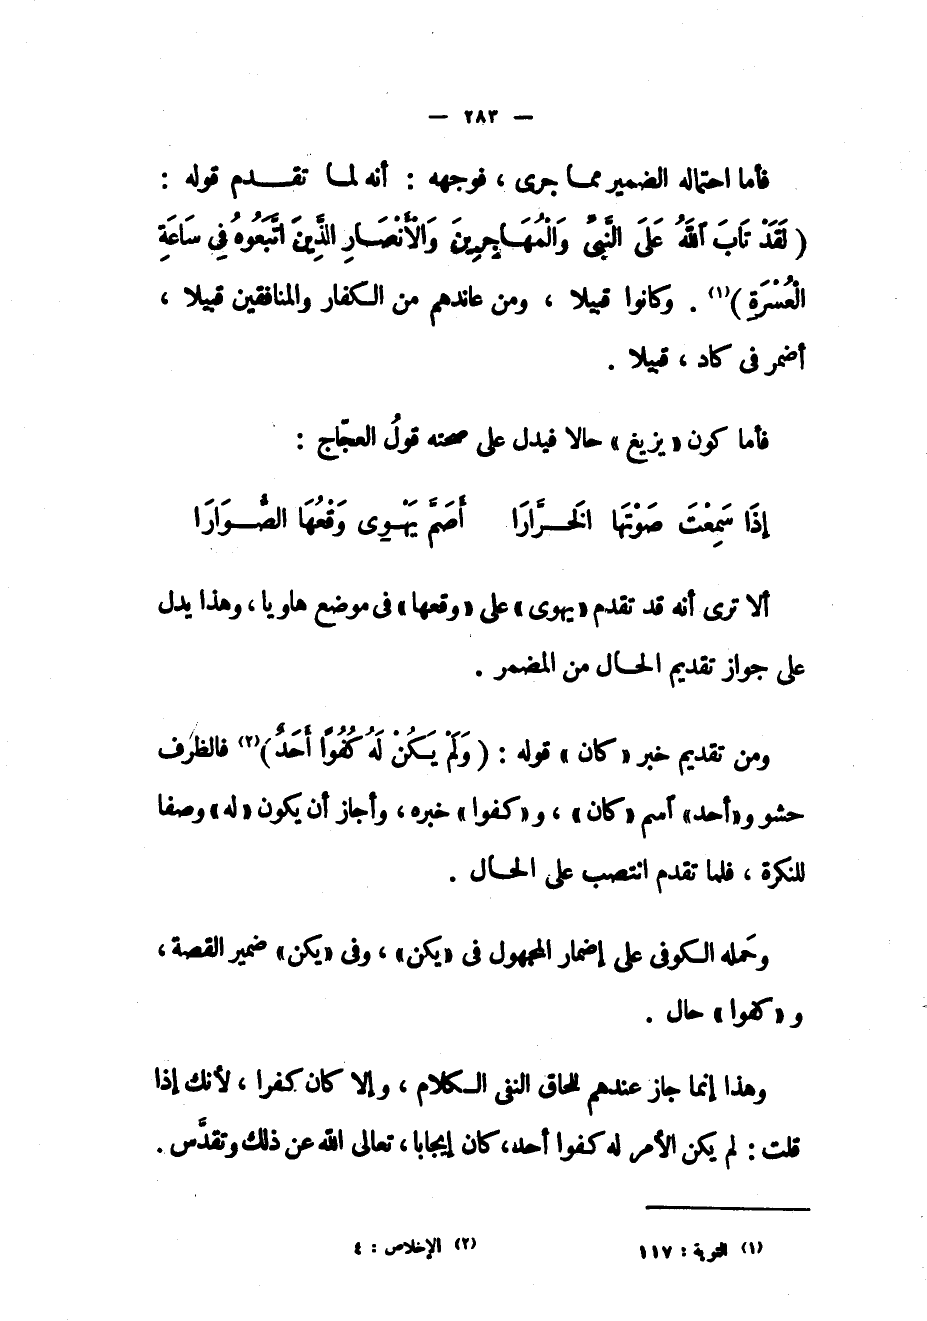 — ٢٨٣ —
فأما احتماله الضمير مما جرى ، فوجهه : أنه لما تقدم قوله :
( لَقَدْ تَابَ ٱللَّهُ عَلَى النَّبِىِّ وَالْمُهَاجِرِينَ وَالْأَنْصَارِ الَّذِينَ اتَّبَعُوهُ فِى سَاعَةِ
الْعُسْرَةِ )(١) . وكانوا قبيلا ، ومن عاندهم من الكفار والمنافقين قبيلا ،
أضمر فى كاد ، قبيلا .
فأما كون «يزيغ» حالا فيدل على صحته قولُ العجّاج :
إِذَا سَمِعْتَ صَوْتَهَا الخَرَّارَا أَصَمَّ يَهْوِى وَقْعُهَا الصُّوَارَا
ألا ترى أنه قد تقدم «يهوى» على «وقعها» فى موضع هاويا ، وهذا يدل
على جواز تقديم الحال من المضمر .
ومن تقديم خبر «كان» قوله : ( وَلَمْ يَكُنْ لَهُ كُفُوًا أَحَدٌ )(٢) فالظرف
حشو و«أحد» ٱسم «كان» ، و«كفوا» خبره ، وأجاز أن يكون «له» وصفا
للنكرة ، فلما تقدم انتصب على الحال .
وحَمله الكوفى على إضمار المجهول فى «يكن» ، وفى «يكن» ضمير القصة ،
و «كفوا» حال .
وهذا إنما جاز عندهم للحاق النفى الكلام ، وإلا كان كفرا ، لأنك إذا
قلت : لم يكن الأمر له كفوا أحد، كان إيجابا ، تعالى الله عن ذلك وتقدَّس .
(١) التوبة : ١١٧ (٢) الإخلاص : ٤